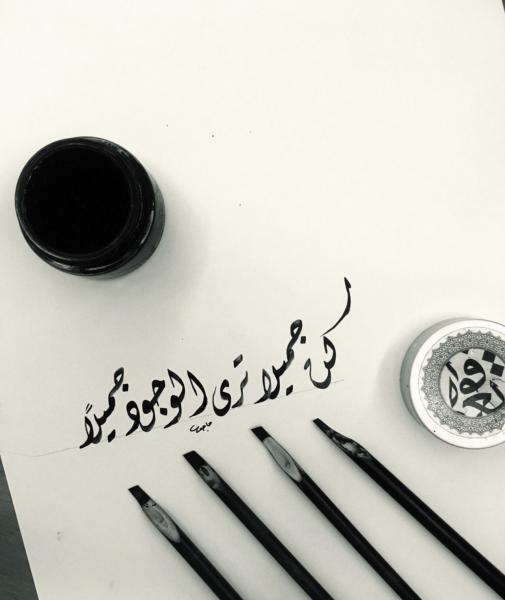 كن جميلا ترى الوجود جميلاً